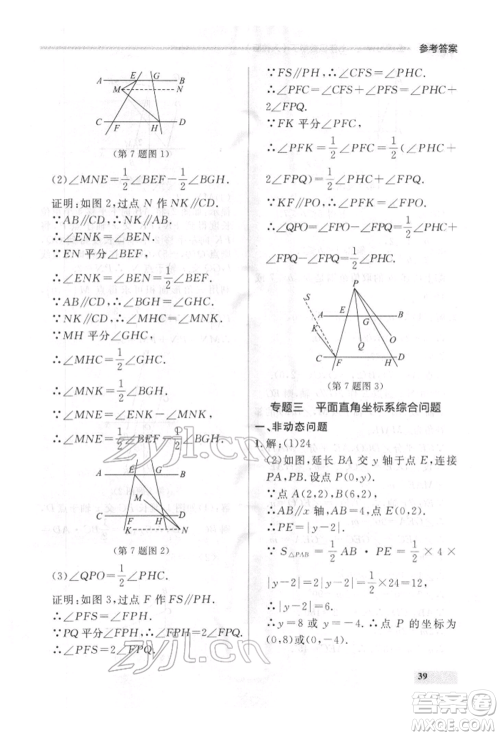 参考答案
A E B
M N
C F H D
(第7题图1)
(2)∠MNE=1/2∠BEF-1/2∠BGH.
证明:如图2,过点N作NK∥CD.
∵AB∥CD,∴AB∥NK∥CD.
∴∠ENK=∠BEN.
∵EN平分∠BEF,
∴∠ENK=∠BEN=1/2∠BEF.
∵AB∥CD,∴∠BGH=∠GHC.
∵NK∥CD,∴∠MNK=∠MHC.
∵MH平分∠GHC,
∴∠MHC=1/2∠GHC.
∴∠MNK=1/2∠BGH.
(第7题图2)
(3)∠QPO=1/2∠PHC.
证明:如图3,过点F作FS∥PH.
∴∠PFS=∠FPH.
∵PQ平分∠FPH,∴∠FPH=2∠FPQ.
∴∠PFS=2∠FPQ.
∵FS∥PH,∴∠CFS=∠PHC.
∴∠PFC=∠CFS+∠PFS=∠PHC+
2∠FPQ.
∵FK平分∠PFC,
∴∠PFK=1/2∠PFC=1/2(∠PHC+
2∠FPQ)=1/2∠PHC+∠FPQ.
∴∠QPO=∠FPO-∠FPQ=1/2∠PHC
+∠FPQ-∠FPQ=1/2∠PHC.
P
S
A G B
K O Q
C F H D
(第7题图3)
专题三 平面直角坐标系综合问题
一、非动态问题
1.解:(1)24
(2)如图,延长BA交y轴于点E,连接
PA,PB.设点P(0,y).
∵点A(2,2),点B(6,2),
∴AB∥x轴,AB=4.
∴PE=|y-2|.
∵S△PAB=1/2AB·PE=1/2×4×
|y-2|=1/2×24,
∴|y-2|=6.
∴y=8或y=-4.∴点P的坐标为
(0,8)或(0,-4).
39
zyjl.cn